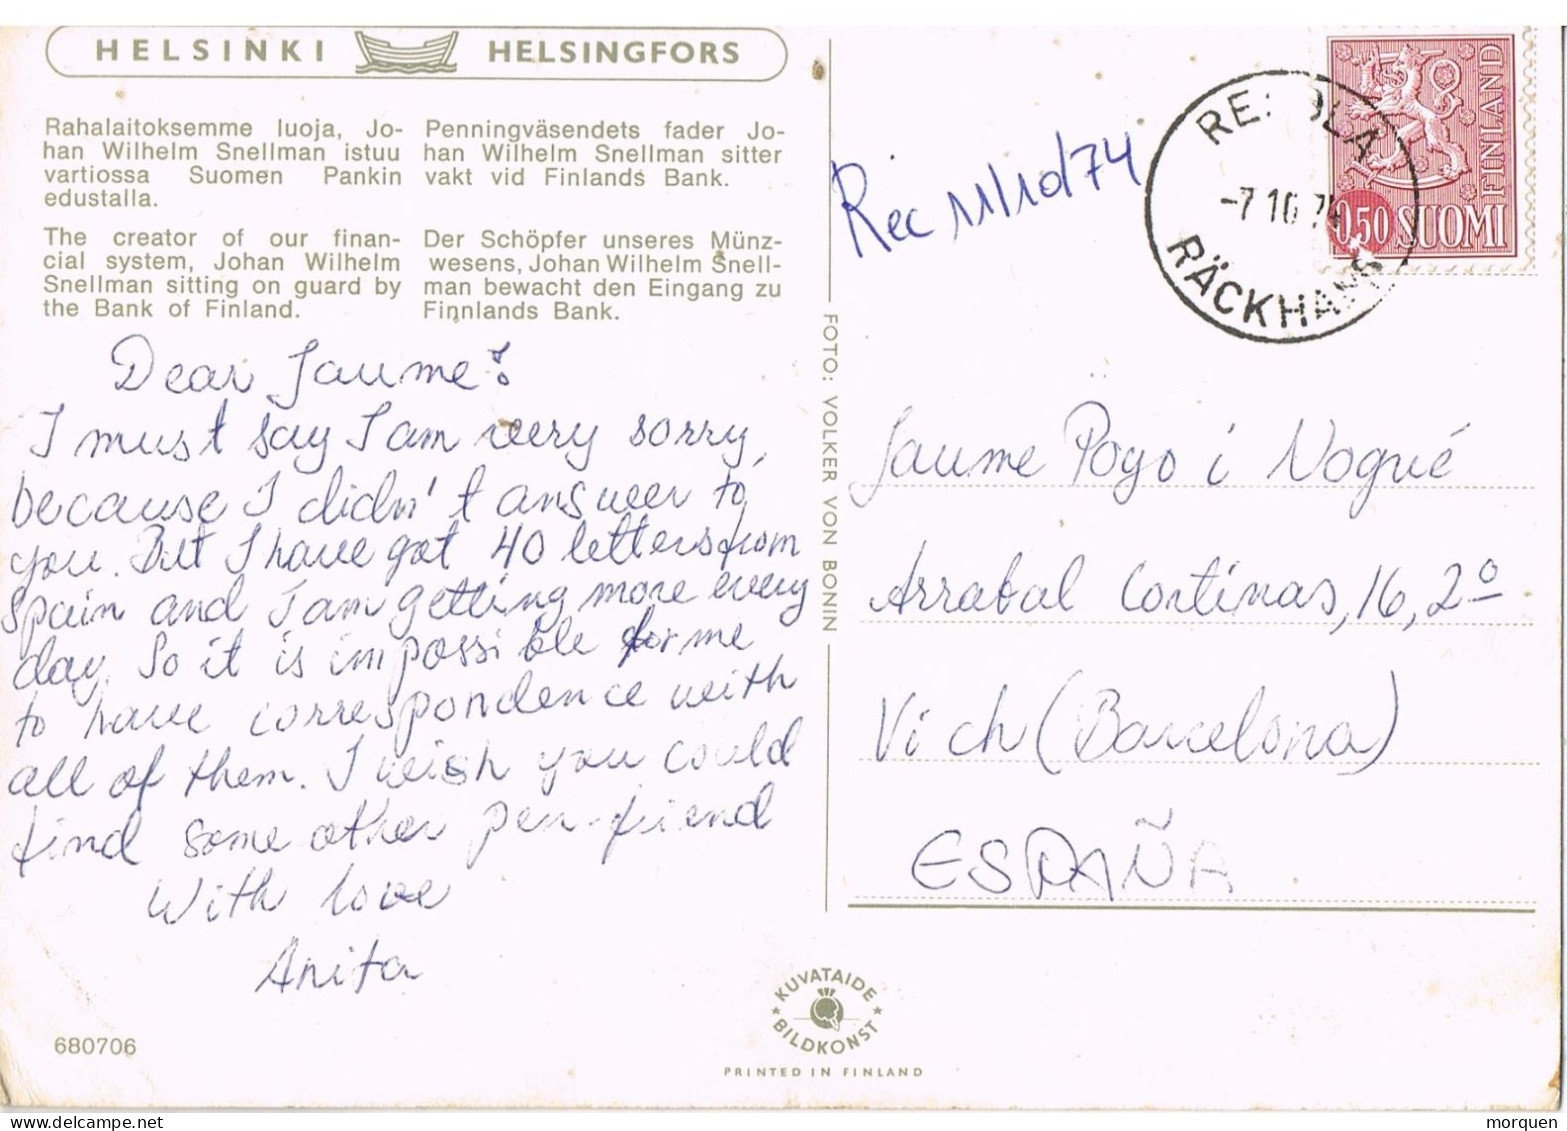 HELSINKI HELSINGFORS
Rahalaitoksemme luoja, Jo-
han Wilhelm Snellman istuu
vartiossa Suomen Pankin
edustalla.
Penningväsendets fader Jo-
han Wilhelm Snellman sitter
vakt vid Finlands Bank.
The creator of our finan-
cial system, Johan Wilhelm
Snellman sitting on guard by
the Bank of Finland.
Der Schöpfer unseres Münz-
wesens, Johan Wilhelm Snell-
man bewacht den Eingang zu
Finnlands Bank.
Dear Jaume!
I must say I am very sorry,
because I didn't answer to
you. But I have got 40 letters from
Spain and I am getting more every
day. So it is impossible for me
to have correspondence with
all of them. I wish you could
find some other pen-friend
With love
Anita
680706
FOTO: VOLKER VON BONIN
KUVATAIDE
BILDKONST
PRINTED IN FINLAND
Rec 11/10/74
-7 10 74
RÄCKHALS
FINLAND
0,50 SUOMI
Jaume Pogo i Nogué
Arrabal Cortinas, 16, 2º
Vich (Barcelona)
ESPAÑA
morquen